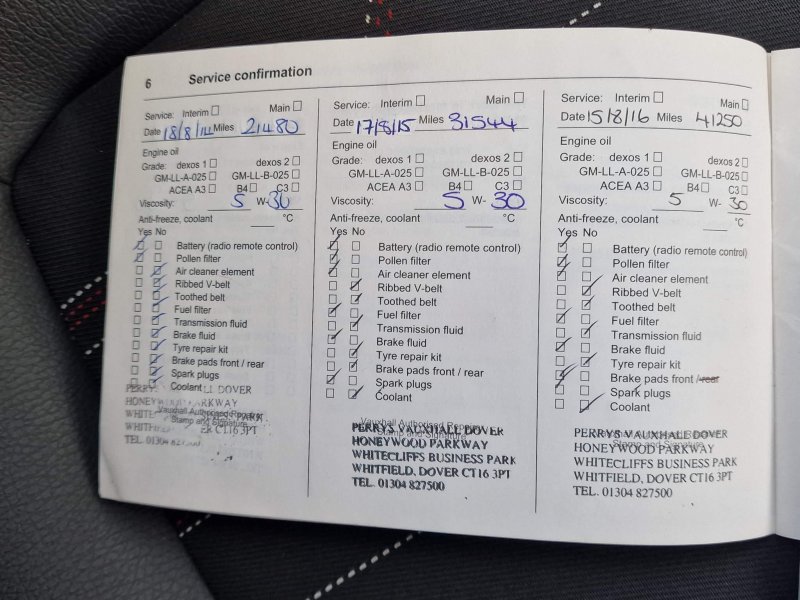 6 Service confirmation
Service: Interim Main
Date 18/8/14 Miles 21480
Engine oil
Grade: dexos 1 dexos 2
GM-LL-A-025 GM-LL-B-025
ACEA A3 B4 C3
Viscosity: 5 W- 30
Anti-freeze, coolant °C
Yes No
Battery (radio remote control)
Pollen filter
Air cleaner element
Ribbed V-belt
Toothed belt
Fuel filter
Transmission fluid
Brake fluid
Tyre repair kit
Brake pads front / rear
Spark plugs
Coolant
PERRYS DOVER
HONEYWOOD PARKWAY
Vauxhall Authorised Repairer
Stamp and Signature
CT16 3PT
TEL. 01304
Service: Interim Main
Date 17/8/15 Miles 31544
Engine oil
Grade: dexos 1 dexos 2
GM-LL-A-025 GM-LL-B-025
ACEA A3 B4 C3
Viscosity: 5 W- 30
Anti-freeze, coolant °C
Yes No
Battery (radio remote control)
Pollen filter
Air cleaner element
Ribbed V-belt
Toothed belt
Fuel filter
Transmission fluid
Brake fluid
Tyre repair kit
Brake pads front / rear
Spark plugs
Coolant
Vauxhall Authorised Repairer
PERRYS VAUXHALL DOVER
Stamp and Signature
HONEYWOOD PARKWAY
WHITECLIFFS BUSINESS PARK
WHITFIELD, DOVER CT16 3PT
TEL. 01304 827500
Service: Interim Main
Date 15/8/16 Miles 41250
Engine oil
Grade: dexos 1 dexos 2
GM-LL-A-025 GM-LL-B-025
ACEA A3 B4 C3
Viscosity: 5 W- 30
Anti-freeze, coolant °C
Yes No
Battery (radio remote control)
Pollen filter
Air cleaner element
Ribbed V-belt
Toothed belt
Fuel filter
Transmission fluid
Brake fluid
Tyre repair kit
Brake pads front / rear
Spark plugs
Coolant
PERRYS VAUXHALL DOVER
Stamp and Signature
HONEYWOOD PARKWAY
WHITECLIFFS BUSINESS PARK
WHITFIELD, DOVER CT16 3PT
TEL. 01304 827500